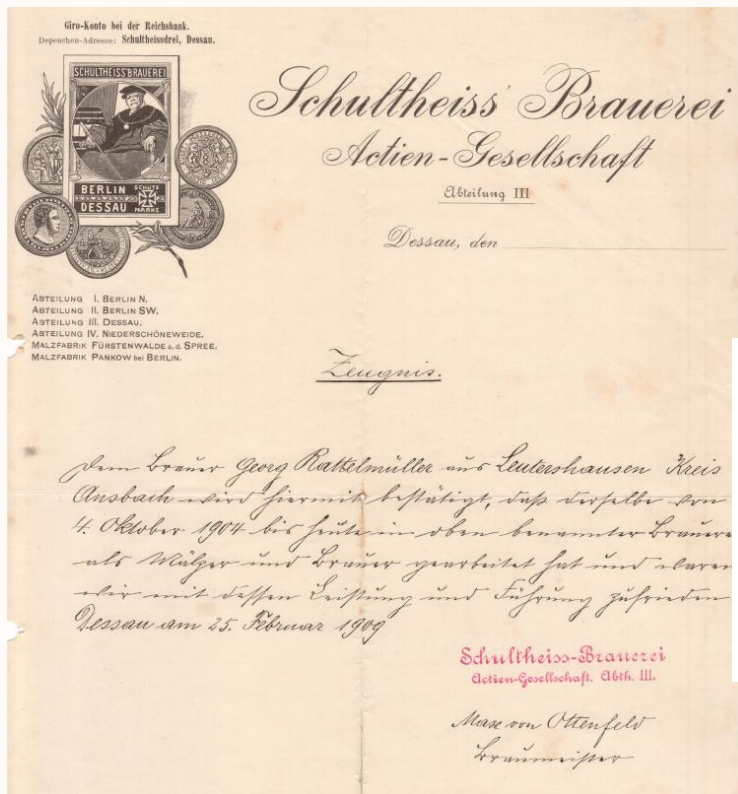 Giro-Konto bei der Reichsbank.
Depeschen-Adresse: Schultheissdrei, Dessau.
SCHULTHEISS' BRAUEREI
BERLIN
DESSAU
SCHUTZ
MARKE
Schultheiss' Brauerei
Actien-Gesellschaft
Abteilung III
Dessau, den
ABTEILUNG I. BERLIN N.
ABTEILUNG II. BERLIN SW.
ABTEILUNG III. DESSAU.
ABTEILUNG IV. NIEDERSCHÖNEWEIDE.
MALZFABRIK FÜRSTENWALDE a.d. SPREE.
MALZFABRIK PANKOW bei BERLIN.
Zeugnis.
Dem Brauer Georg Rattelmüller aus Leutershausen Kreis
Ansbach wird hiermit bestätigt, daß derselbe von
4. Oktober 1904 bis heute in oben benannter Brauere
als Mälzer und Brauer gearbeitet hat und waren
wir mit dessen Leistung und Führung zufrieden
Dessau am 25. Februar 1909
Schultheiss-Brauerei
Actien-Gesellschaft. Abth. III.
Max von Ottenfeld
Braumeister